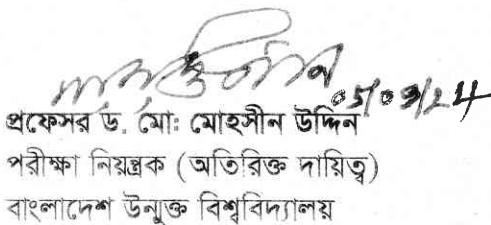 ০5/03/24
প্রফেসর ড. মো: মোহসীন উদ্দিন
পরীক্ষা নিয়ন্ত্রক (অতিরিক্ত দায়িত্ব)
বাংলাদেশ উন্মুক্ত বিশ্ববিদ্যালয়